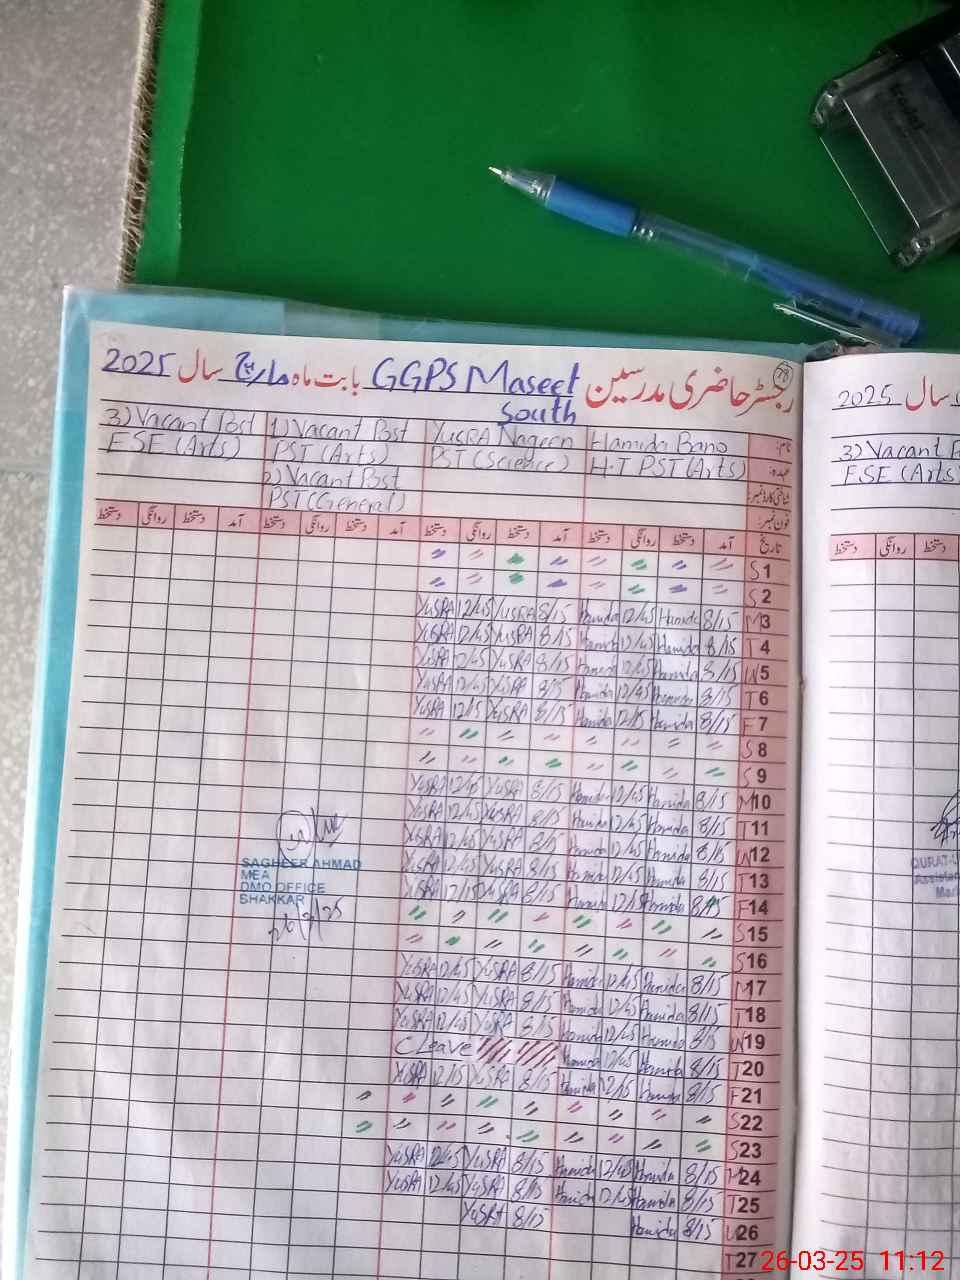 رجسٹر حاضری مدرسین GGPS Maseet South بابت ماہ مارچ سال 2025
78
نام: Hamida Bano YUSRA Nageen 1) Vacant Post 3) Vacant Post
عہدہ: H.T PST (Arts) PST (Science) PST (Arts) ESE (Arts)
شناختی کارڈ نمبر: 2) Vacant Post
فون نمبر: PST (General)
تاریخ آمد دستخط روانگی دستخط آمد دستخط روانگی دستخط آمد دستخط روانگی دستخط آمد دستخط روانگی دستخط
S 1
S 2
M 3 8/15 Hamida 12/45 Hamida 8/15 YUSRA 12/45 YUSRA
T 4 8/15 Hamida 12/45 Hamida 8/15 YUSRA 12/45 YUSRA
W 5 8/15 Hamida 12/45 Hamida 8/15 YUSRA 12/45 YUSRA
T 6 8/15 Hamida 12/45 Hamida 8/15 YUSRA 12/45 YUSRA
F 7 8/15 Hamida 12/15 Hamida 8/15 YUSRA 12/15 YUSRA
S 8
S 9
M 10 8/15 Hamida 12/45 Hamida 8/15 YUSRA 12/45 YUSRA
T 11 8/15 Hamida 12/45 Hamida 8/15 YUSRA 12/45 YUSRA
W 12 8/15 Hamida 12/45 Hamida 8/15 YUSRA 12/45 YUSRA
T 13 8/15 Hamida 12/45 Hamida 8/15 YUSRA 12/45 YUSRA
F 14 8/15 Hamida 12/15 Hamida 8/15 YUSRA 12/15 YUSRA
S 15
S 16
M 17 8/15 Hamida 12/45 Hamida 8/15 YUSRA 12/45 YUSRA
T 18 8/15 Hamida 12/45 Hamida 8/15 YUSRA 12/45 YUSRA
W 19 8/15 Hamida 12/45 Hamida 8/15 YUSRA 12/45 YUSRA
T 20 8/15 Hamida 12/45 Hamida C Leave
F 21 8/15 Hamida 12/15 Hamida 8/15 YUSRA 12/15 YUSRA
S 22
S 23
M 24 8/15 Hamida 12/45 Hamida 8/15 YUSRA 12/45 YUSRA
T 25 8/15 Hamida 12/45 Hamida 8/15 YUSRA 12/45 YUSRA
W 26 8/15 Hamida 8/15 YUSRA
T 27
SAGHEER AHMAD
MEA
DMO OFFICE
BHAKKAR
26/3/25
سال 2025
3) Vacant
ESE (Arts)
دستخط روانگی دستخط
26-03-25 11:12